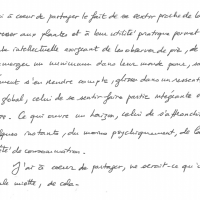 i à coeur de partager le fait de se sentir proche de la
esser aux plantes et à leur utilité pratique permet
te intellectuelle exigeant de les observer de près, et
immerger un minimum dans leur monde pour, sans
ment s'en rendre compte, glisser dans un ressenti
global, celui de se sentir faire partie intégrante de
re. Ce qui ouvre un horizon, celui de s'affranchir
elques instants, du moins psychiquement, de la
ité de consommation.
J'ai à coeur de partager, ne serait-ce qu'
le miette, de cela.